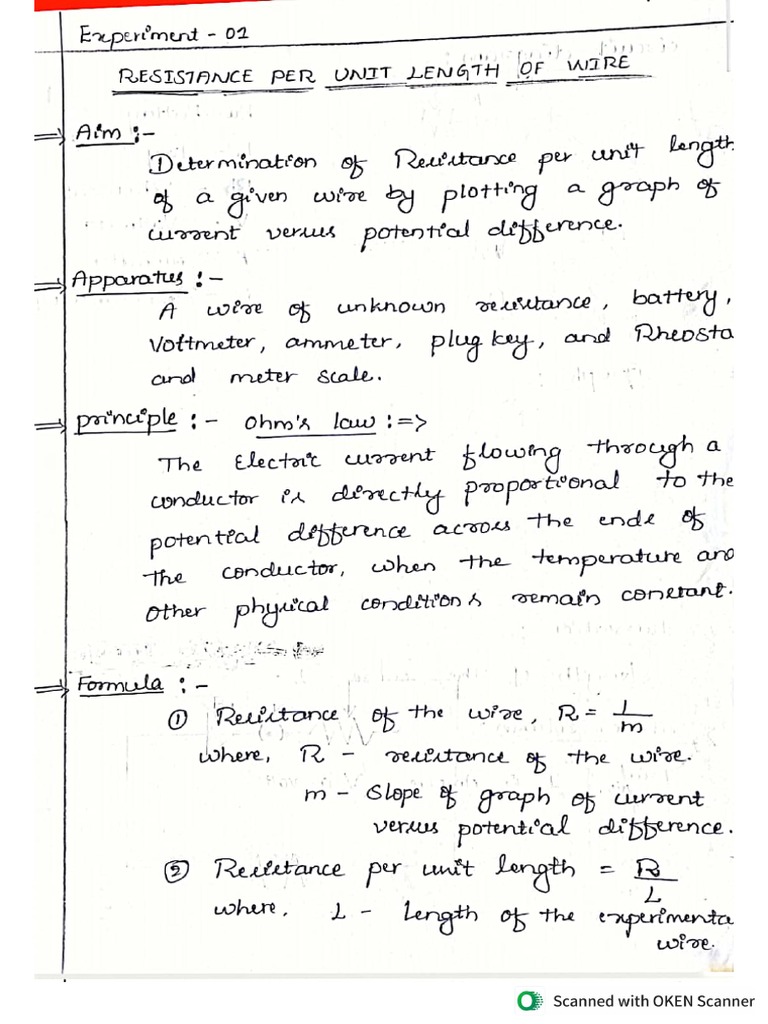 Experiment - 01
RESISTANCE PER UNIT LENGTH OF WIRE
⇒ Aim :-
① Determination of Resistance per unit length
of a given wire by plotting a graph of
current versus potential difference.
⇒ Apparatus :-
A wire of unknown resistance, battery,
Voltmeter, ammeter, plug key, and Rheosta
and meter scale.
⇒ principle :- Ohm's law :=>
The Electric current flowing through a
conductor is directly proportional to the
potential difference across the ends of
the conductor, when the temperature and
other physical conditions remain constant.
⇒ Formula :-
① Resistance of the wire, R = 1/m
where, R - resistance of the wire.
m - Slope of graph of current
versus potential difference.
② Resistance per unit length = R/L
where, L - length of the experimenta
wire.
Scanned with OKEN Scanner